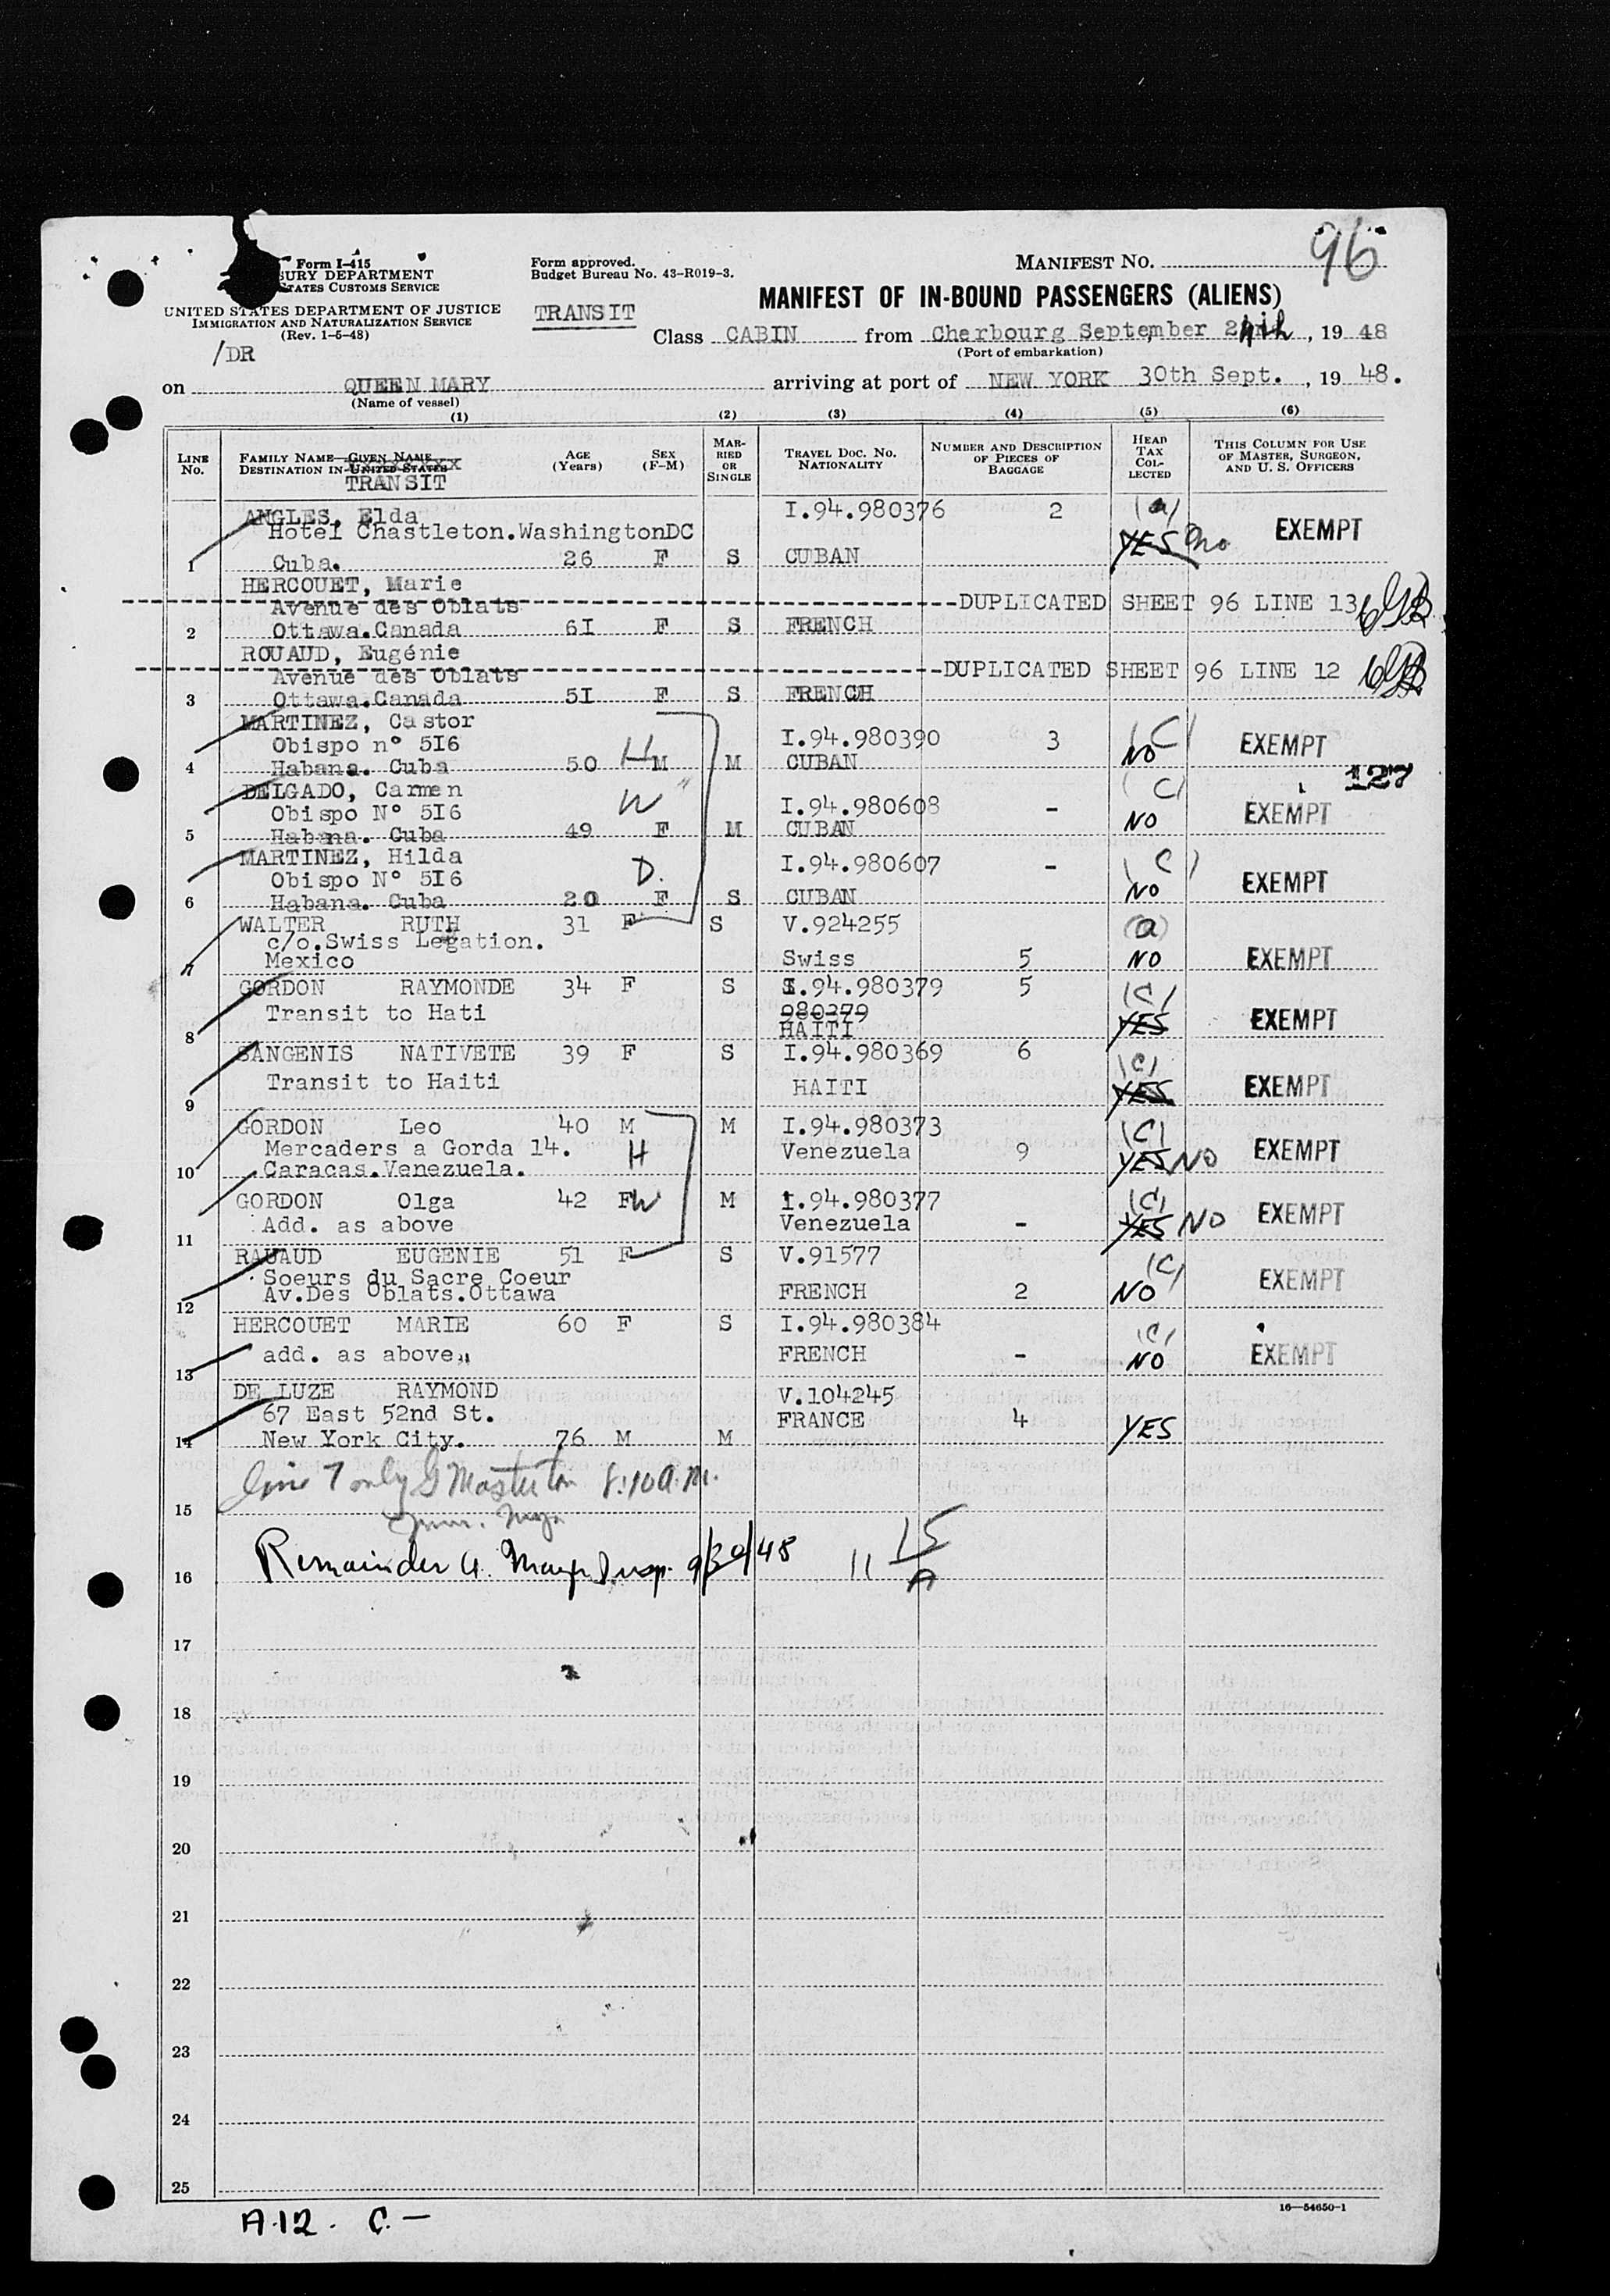 96
Form I-415
SURY DEPARTMENT
STATES CUSTOMS SERVICE
UNITED STATES DEPARTMENT OF JUSTICE
IMMIGRATION AND NATURALIZATION SERVICE
(Rev. 1-5-48)
/DR
Form approved.
Budget Bureau No. 43-R019-3.
TRANSIT
MANIFEST NO.
MANIFEST OF IN-BOUND PASSENGERS (ALIENS)
Class CABIN from Cherbourg September , 19 48
(Port of embarkation)
on QUEEN MARY arriving at port of NEW YORK 30th Sept. , 19 48.
(Name of vessel)
(1) (2) (3) (4) (5) (6)
LINE NO.
FAMILY NAME—GIVEN NAME
DESTINATION IN UNITED STATES
TRANSIT
AGE (Years)
SEX (F-M)
MARRIED OR SINGLE
TRAVEL DOC. NO. NATIONALITY
NUMBER AND DESCRIPTION OF PIECES OF BAGGAGE
HEAD TAX COLLECTED
THIS COLUMN FOR USE OF MASTER, SURGEON, AND U. S. OFFICERS
ANGLES, Elda I.94.980376 2 (a)
Hotel Chastleton.WashingtonDC YES no EXEMPT
1 Cuba. 26 F S CUBAN
HERCOUET, Marie
Avenue des Oblats DUPLICATED SHEET 96 LINE 13
2 Ottawa.Canada 6I F S FRENCH
ROUAUD, Eugénie
Avenue des Oblats DUPLICATED SHEET 96 LINE 12
3 Ottawa.Canada 5I F S FRENCH
MARTINEZ, Castor
Obispo n° 5I6 H I.94.980390 3 (C) EXEMPT
4 Habana. Cuba 50 M M CUBAN NO
127
DELGADO, Carmen W " (C)
Obispo N° 5I6 I.94.980608 - EXEMPT
5 Habana. Cuba 49 F M CUBAN NO
MARTINEZ, Hilda D. I.94.980607 - (C)
Obispo N° 5I6 EXEMPT
6 Habana. Cuba 20 F S CUBAN NO
WALTER RUTH 31 F S V.924255 (a)
c/o.Swiss Legation.
7 Mexico Swiss 5 NO EXEMPT
GORDON RAYMONDE 34 F S I.94.980379 5 (C)
Transit to Hati 980379
8 HAITI YES EXEMPT
SANGENIS NATIVETE 39 F S I.94.980369 6 (C)
Transit to Haiti HAITI YES EXEMPT
9
GORDON Leo 40 M M I.94.980373 (C)
Mercaders a Gorda 14. H Venezuela 9 YES NO EXEMPT
10 Caracas.Venezuela.
GORDON Olga 42 F W M I.94.980377 (C)
Add. as above Venezuela - YES NO EXEMPT
11
RAUAUD EUGENIE 51 F S V.91577 (C)
Soeurs du Sacre Coeur EXEMPT
12 Av.Des Oblats.Ottawa FRENCH 2 NO
HERCOUET MARIE 60 F S I.94.980384 (C)
add. as above" FRENCH - NO EXEMPT
13
DE LUZE RAYMOND V.104245
67 East 52nd St. FRANCE 4 YES
14 New York City. 76 M M
line 7 only G Masterton 8:10 a.m.
15
16 Remainder 9/30/48 11 15
A
17
18
19
20
21
22
23
24
25
16—54650-1
A-12. C.—